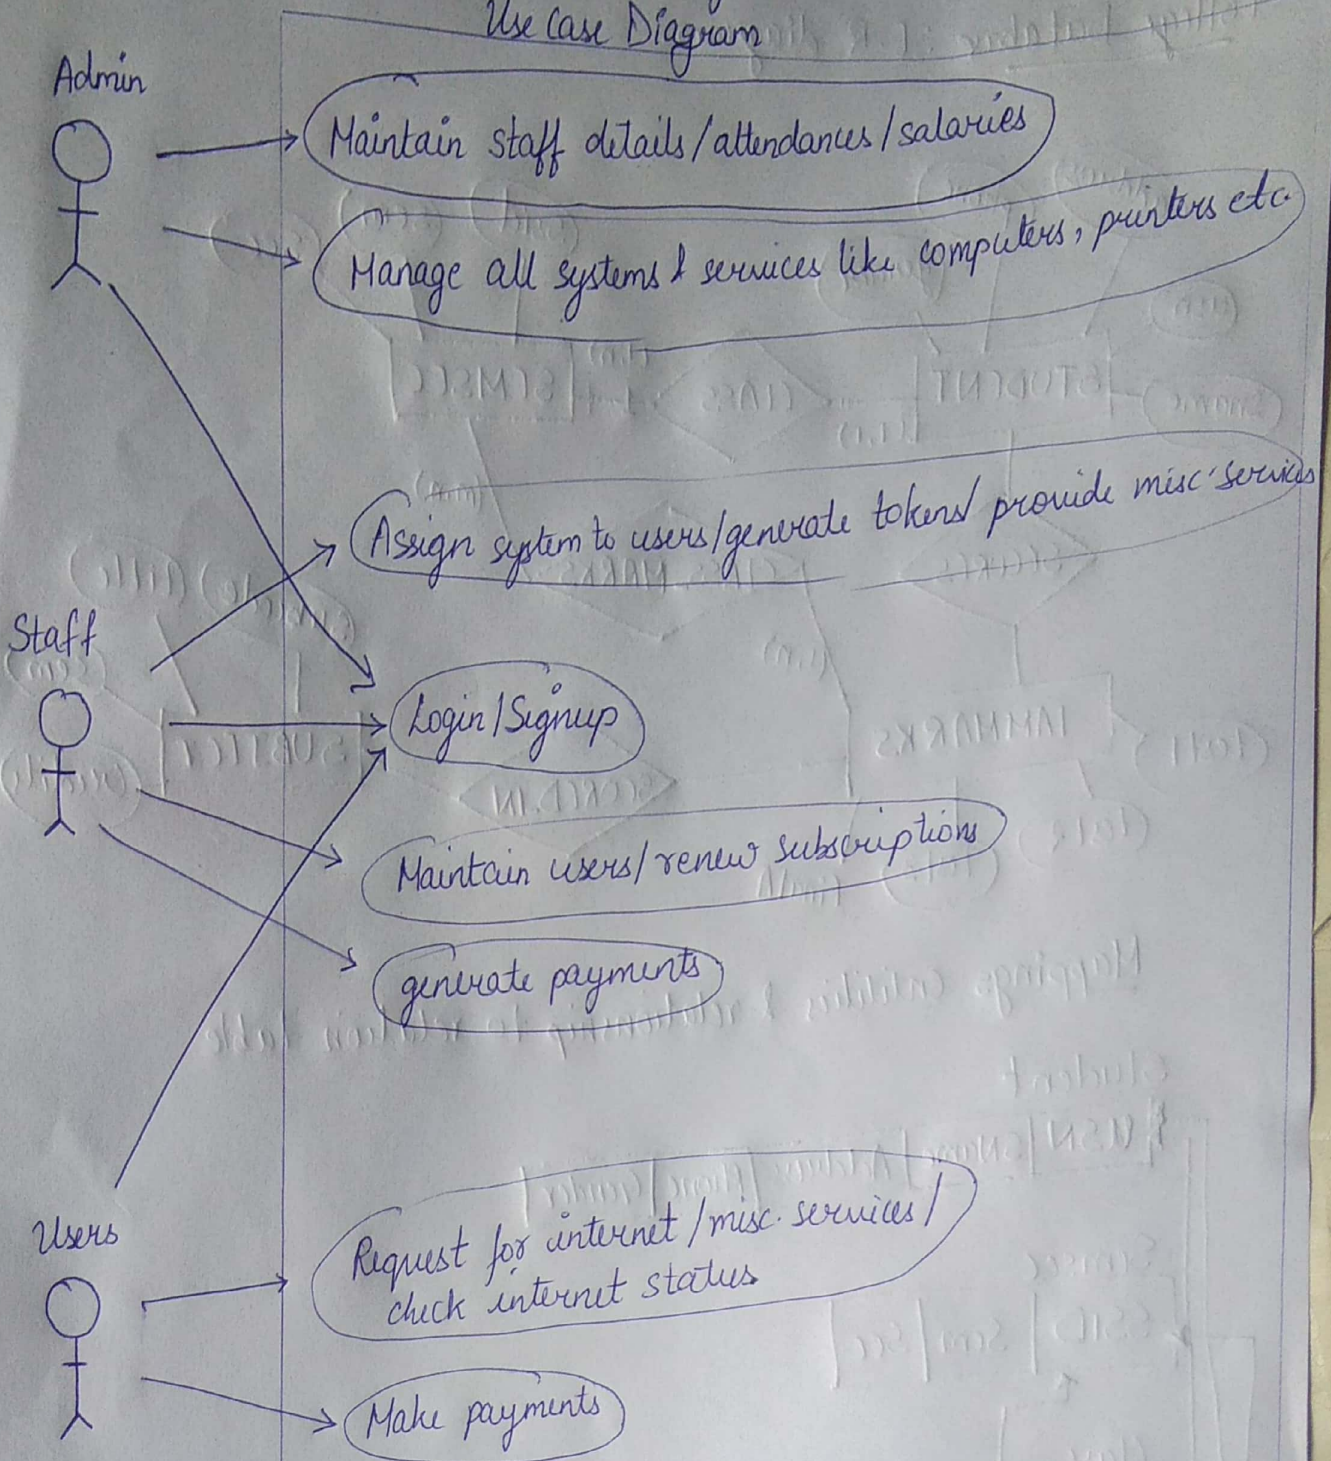 Use Case Diagram
Admin
Maintain staff details/attendances/salaries
Manage all systems & services like computers, printers etc.
Assign system to users/generate tokens/ provide misc. services
Staff
Login/Signup
Maintain users/renew subscriptions
generate payments
Users
Request for internet/misc. services/
check internet status.
Make payments